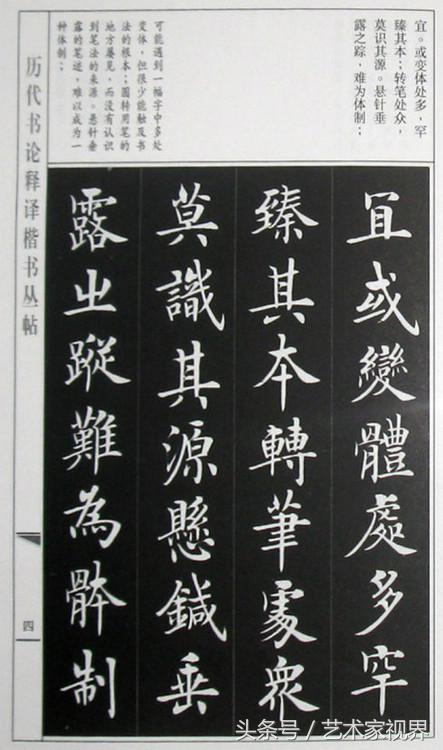 宜。或变体处多，罕
臻其本；转笔处众，
莫识其源。悬针垂
露之踪，难为体制；
可能遇到一幅字中多处
变体，但很少能触及书
法的根本；圆转用笔的
地方屡见，而没有认识
到笔法的来源。悬针垂
露的笔迹，难以成为一
种体制；
冝或變體處多罕
臻其本轉筆處眾
莫識其源懸鍼垂
露之蹤難為骵制
历代书论释译楷书丛帖
四
头条号／艺术家视界